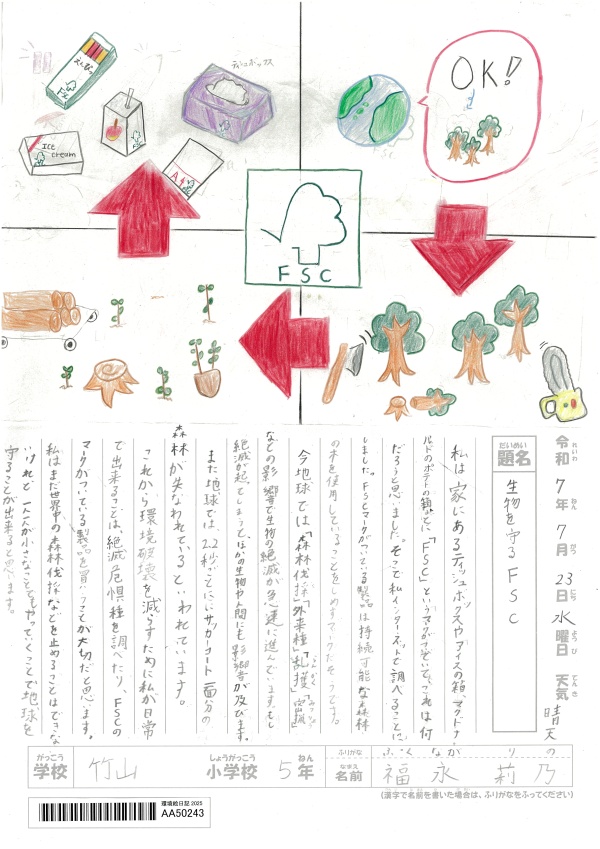 えんぴつ
FSC
ティシュボックス
Ice
cream
A4
OK!
FSC
令和7年7月23日水曜日 天気 晴天
れいわ ねん がつ にち ようび てんき
だいめい
題名
生物を守るFSC
私は家にあるティッシュボックスやアイスの箱、マクドナ
ルドのポテトの箱などに「FSC」というマークがついていて、これは何
だろうと思いました。そこで私インターネットで調べることに
しました。FSCマークがついている製品は持続可能な森林
の木を使用していることをしめすマークだそうです。
今地球では「森林伐採」「外来種」「乱獲」「密猟」
などの影響で生物の絶滅が急速に進んでいます。もし
絶滅が起きてしまうと、ほかの生物や人間にも影響が及びます。
また地球では、2.2秒ごとににサッカーコート一面分の
森林が失なわれているといわれています。
これから環境破壊を減らすために私が日常
で出来ることは、絶滅危惧種を調べたり、FSCの
マークがついている製品を買いうことが大切だと思います。
私はまだ世界中の森林伐採などを止めることはできな
いけれど、一人一人が小さなことでもやっていくことで地球を
守ることが出来ると思います。
がっこう しょうがっこう ねん ふりがな ふくなが りの
学校 竹山 小学校 5年 名前 福永 莉乃
なまえ
(漢字で名前を書いた場合は、ふりがなをふってください)
環境絵日記 2025
AA50243